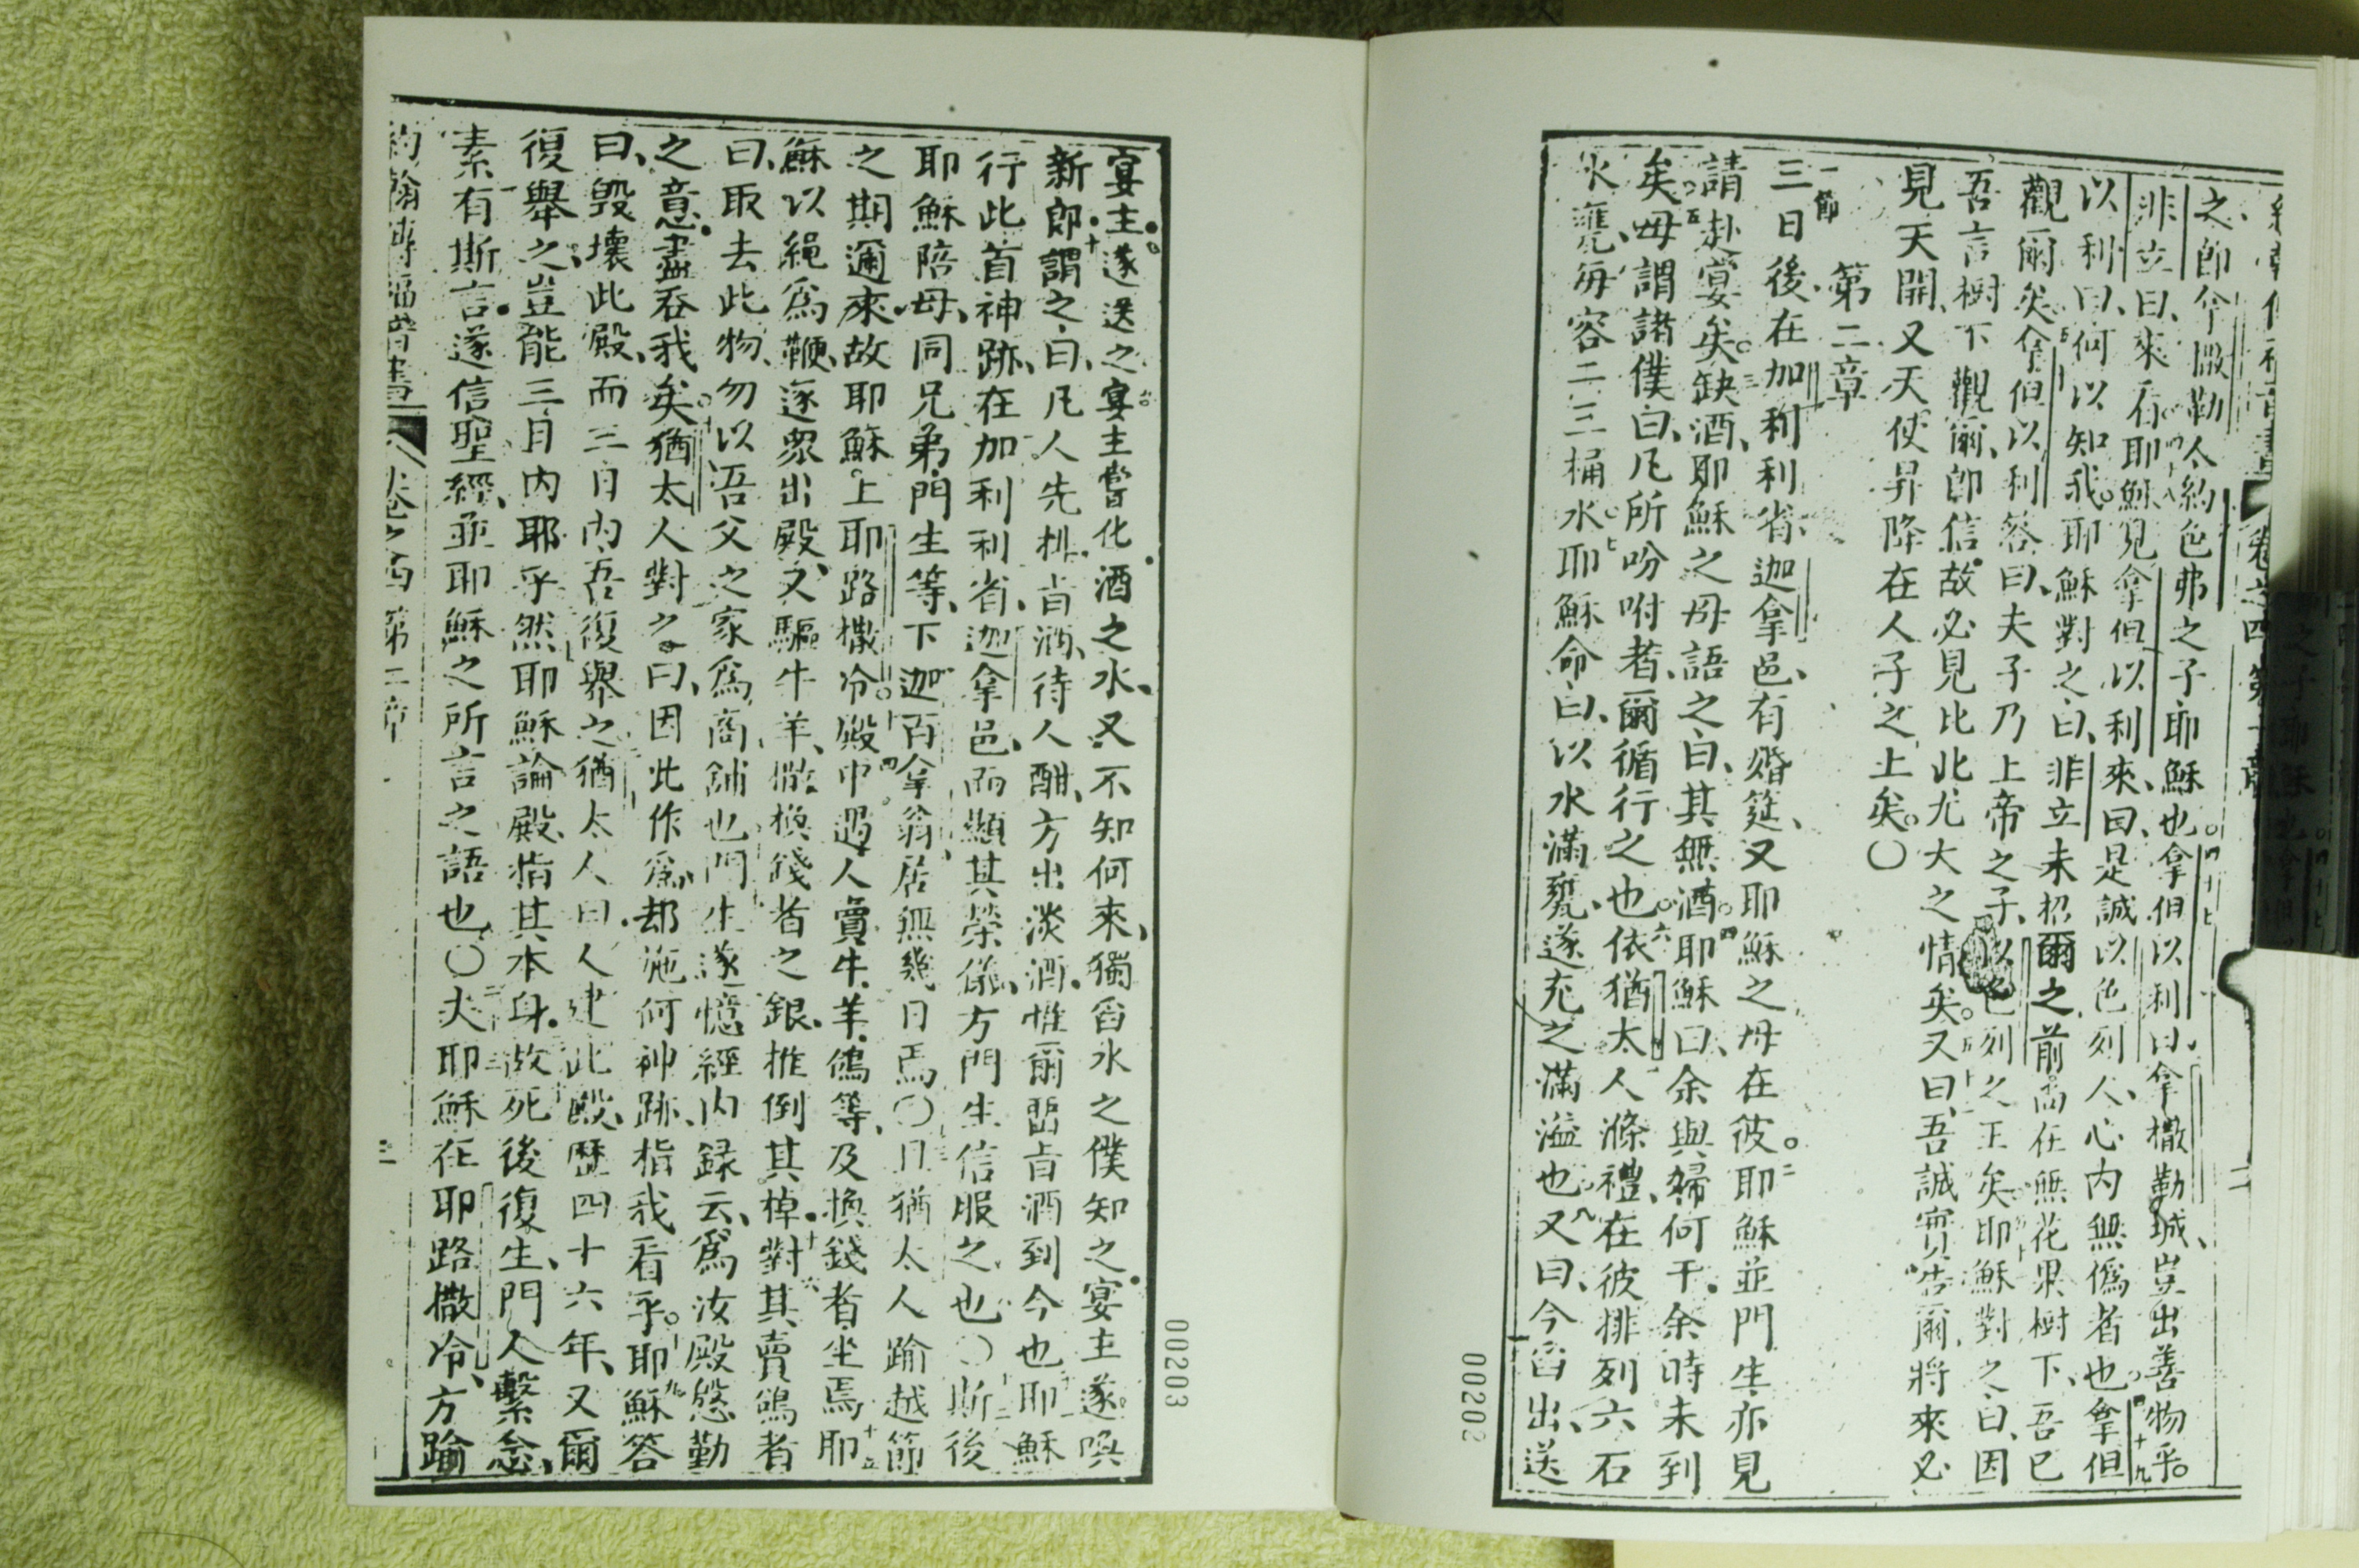 之卽今撒勒人約色弗之子耶穌也。四十七拿但以利曰拿撒勒城豈出善物乎。
非立曰來看四十八耶穌見拿但以利來曰是誠以色列人心內無僞者也四十九拿但
以利曰何以知我。耶穌對之曰非立未招爾之前尚在無花果樹下吾已
觀爾矣拿但以利答曰夫子乃上帝之子以色列之王矣耶穌對之曰因
吾言樹下觀爾卽信故必見比此尤大之情矣。又曰吾誠實告爾將來必
見天開又天使昇降在人子之上矣。〇
第二章
一節三日後在加利利省迦拿邑有婚筵又耶穌之母在彼。二耶穌並門生亦見
請赴宴矣。三缺酒耶穌之母語之曰其無酒。四耶穌曰余與婦何干余時未到
矣。五母謂諸僕曰凡所吩咐者爾循行之也。六依猶太人滌禮在彼排列六石
水甕每容二三桶水。七耶穌命曰以水滿甕遂充之滿溢也八又曰今舀出送
00202
宴主遂送之宴主嘗化酒之水又不知何來獨舀水之僕知之宴主遂喚
新郎十謂之曰凡人先排旨酒待人酣方出淡酒惟爾留旨酒到今也耶穌
行此首神跡在加利利省迦拿邑而顯其榮儀方門生信服之也〇斯後
耶穌陪母同兄弟門生等下迦百拿翁居無幾日焉〇猶太人踰越節
之期邇來故耶穌上耶路撒冷。十四殿中遇人賣牛羊鴿等及換錢者坐焉十五耶
穌以繩爲鞭逐衆出殿又驅牛羊撒換錢者之銀推倒其棹十六對其賣鴿者
曰取去此物勿以吾父之家爲商舖也門生遂憶經內録云爲汝殿慇勤
之意盡吞我矣。猶太人對之曰因此作爲却施何神跡指我看乎。十九耶穌答
曰毀壞此殿而三日內吾復舉之猶太人曰人建此殿歷四十六年又爾
復舉之豈能三日內耶乎然耶穌論殿指其本身故死後復生門人繫念
素有斯言遂信聖經並耶穌之所言之語也〇夫耶穌在耶路撒冷方踰
約翰傳福音書 卷之四 第二章 三
00203